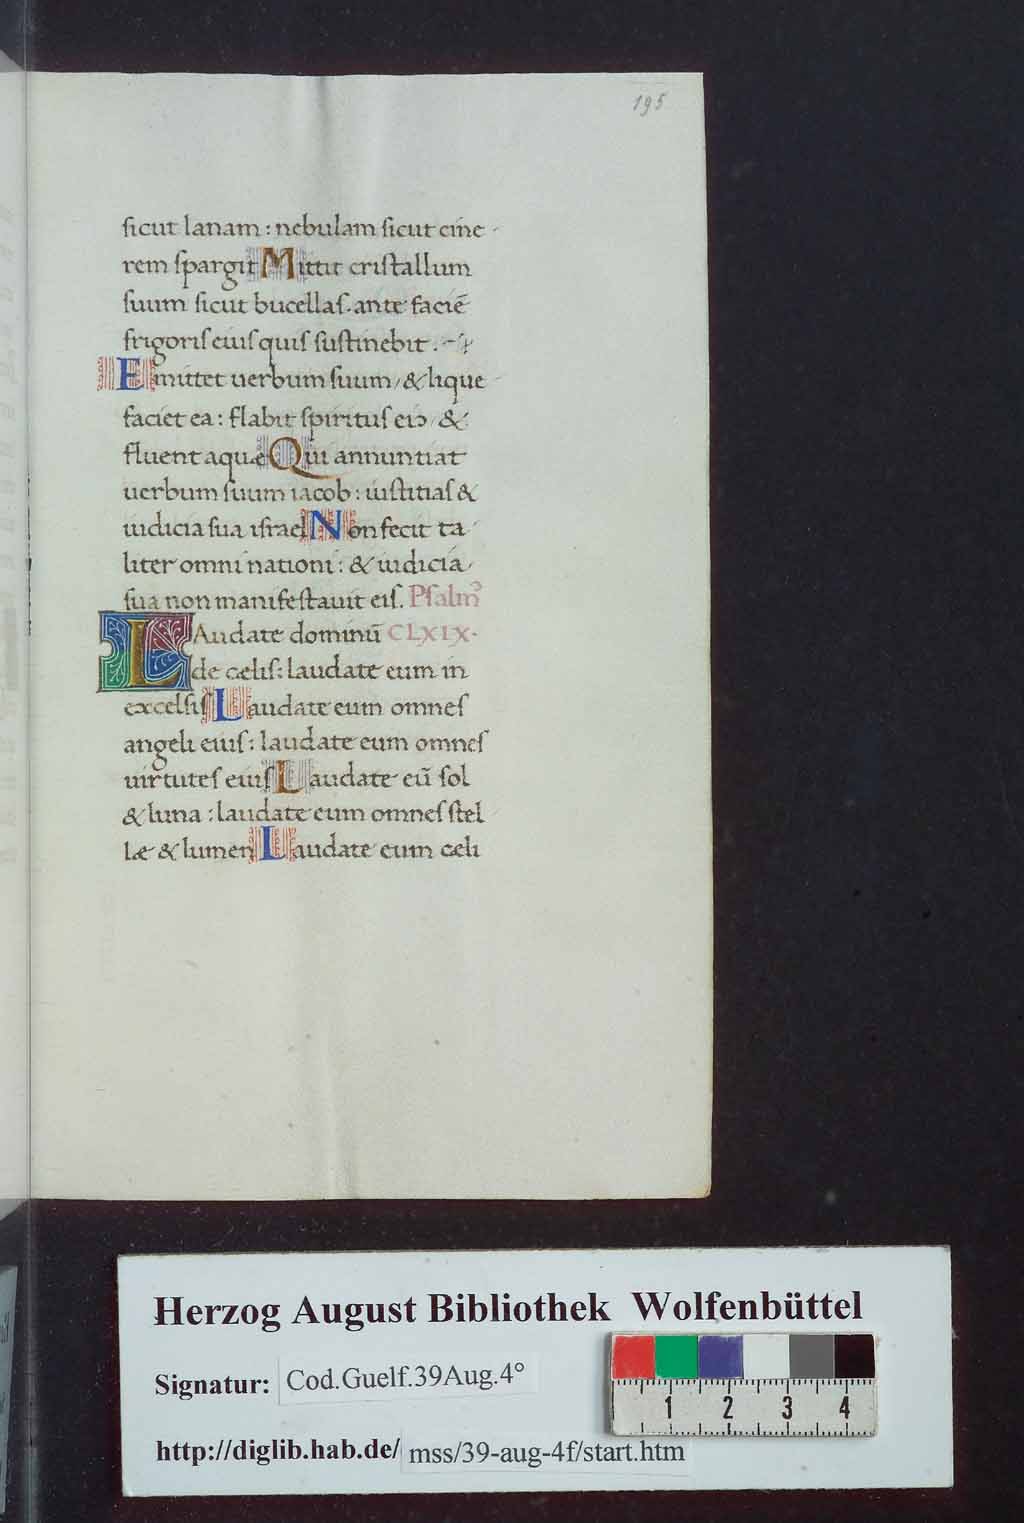 195
sicut lanam : nebulam sicut cine
rem spargit Mittit cristallum
suum sicut bucellas. ante faciē
frigoris eius quis sustinebit.
Emittet uerbum suum, & lique
faciet ea : flabit spiritus eiꝰ, &
fluent aquæ Qui annuntiat
uerbum suum iacob : iustitias &
iudicia sua israel Non fecit ta
liter omni nationi : & iudicia
sua non manifestauit eis. Psalmꝰ
LAudate dominū CLXIX.
de cælis : laudate eum in
excelsis Laudate eum omnes
angeli eius : laudate eum omnes
uirtutes eius Laudate eū sol
& luna : laudate eum omnes stel
læ & lumen Laudate eum cæli
Herzog August Bibliothek Wolfenbüttel
Signatur: Cod.Guelf.39Aug.4°
1 2 3 4
http://diglib.hab.de/ mss/39-aug-4f/start.htm